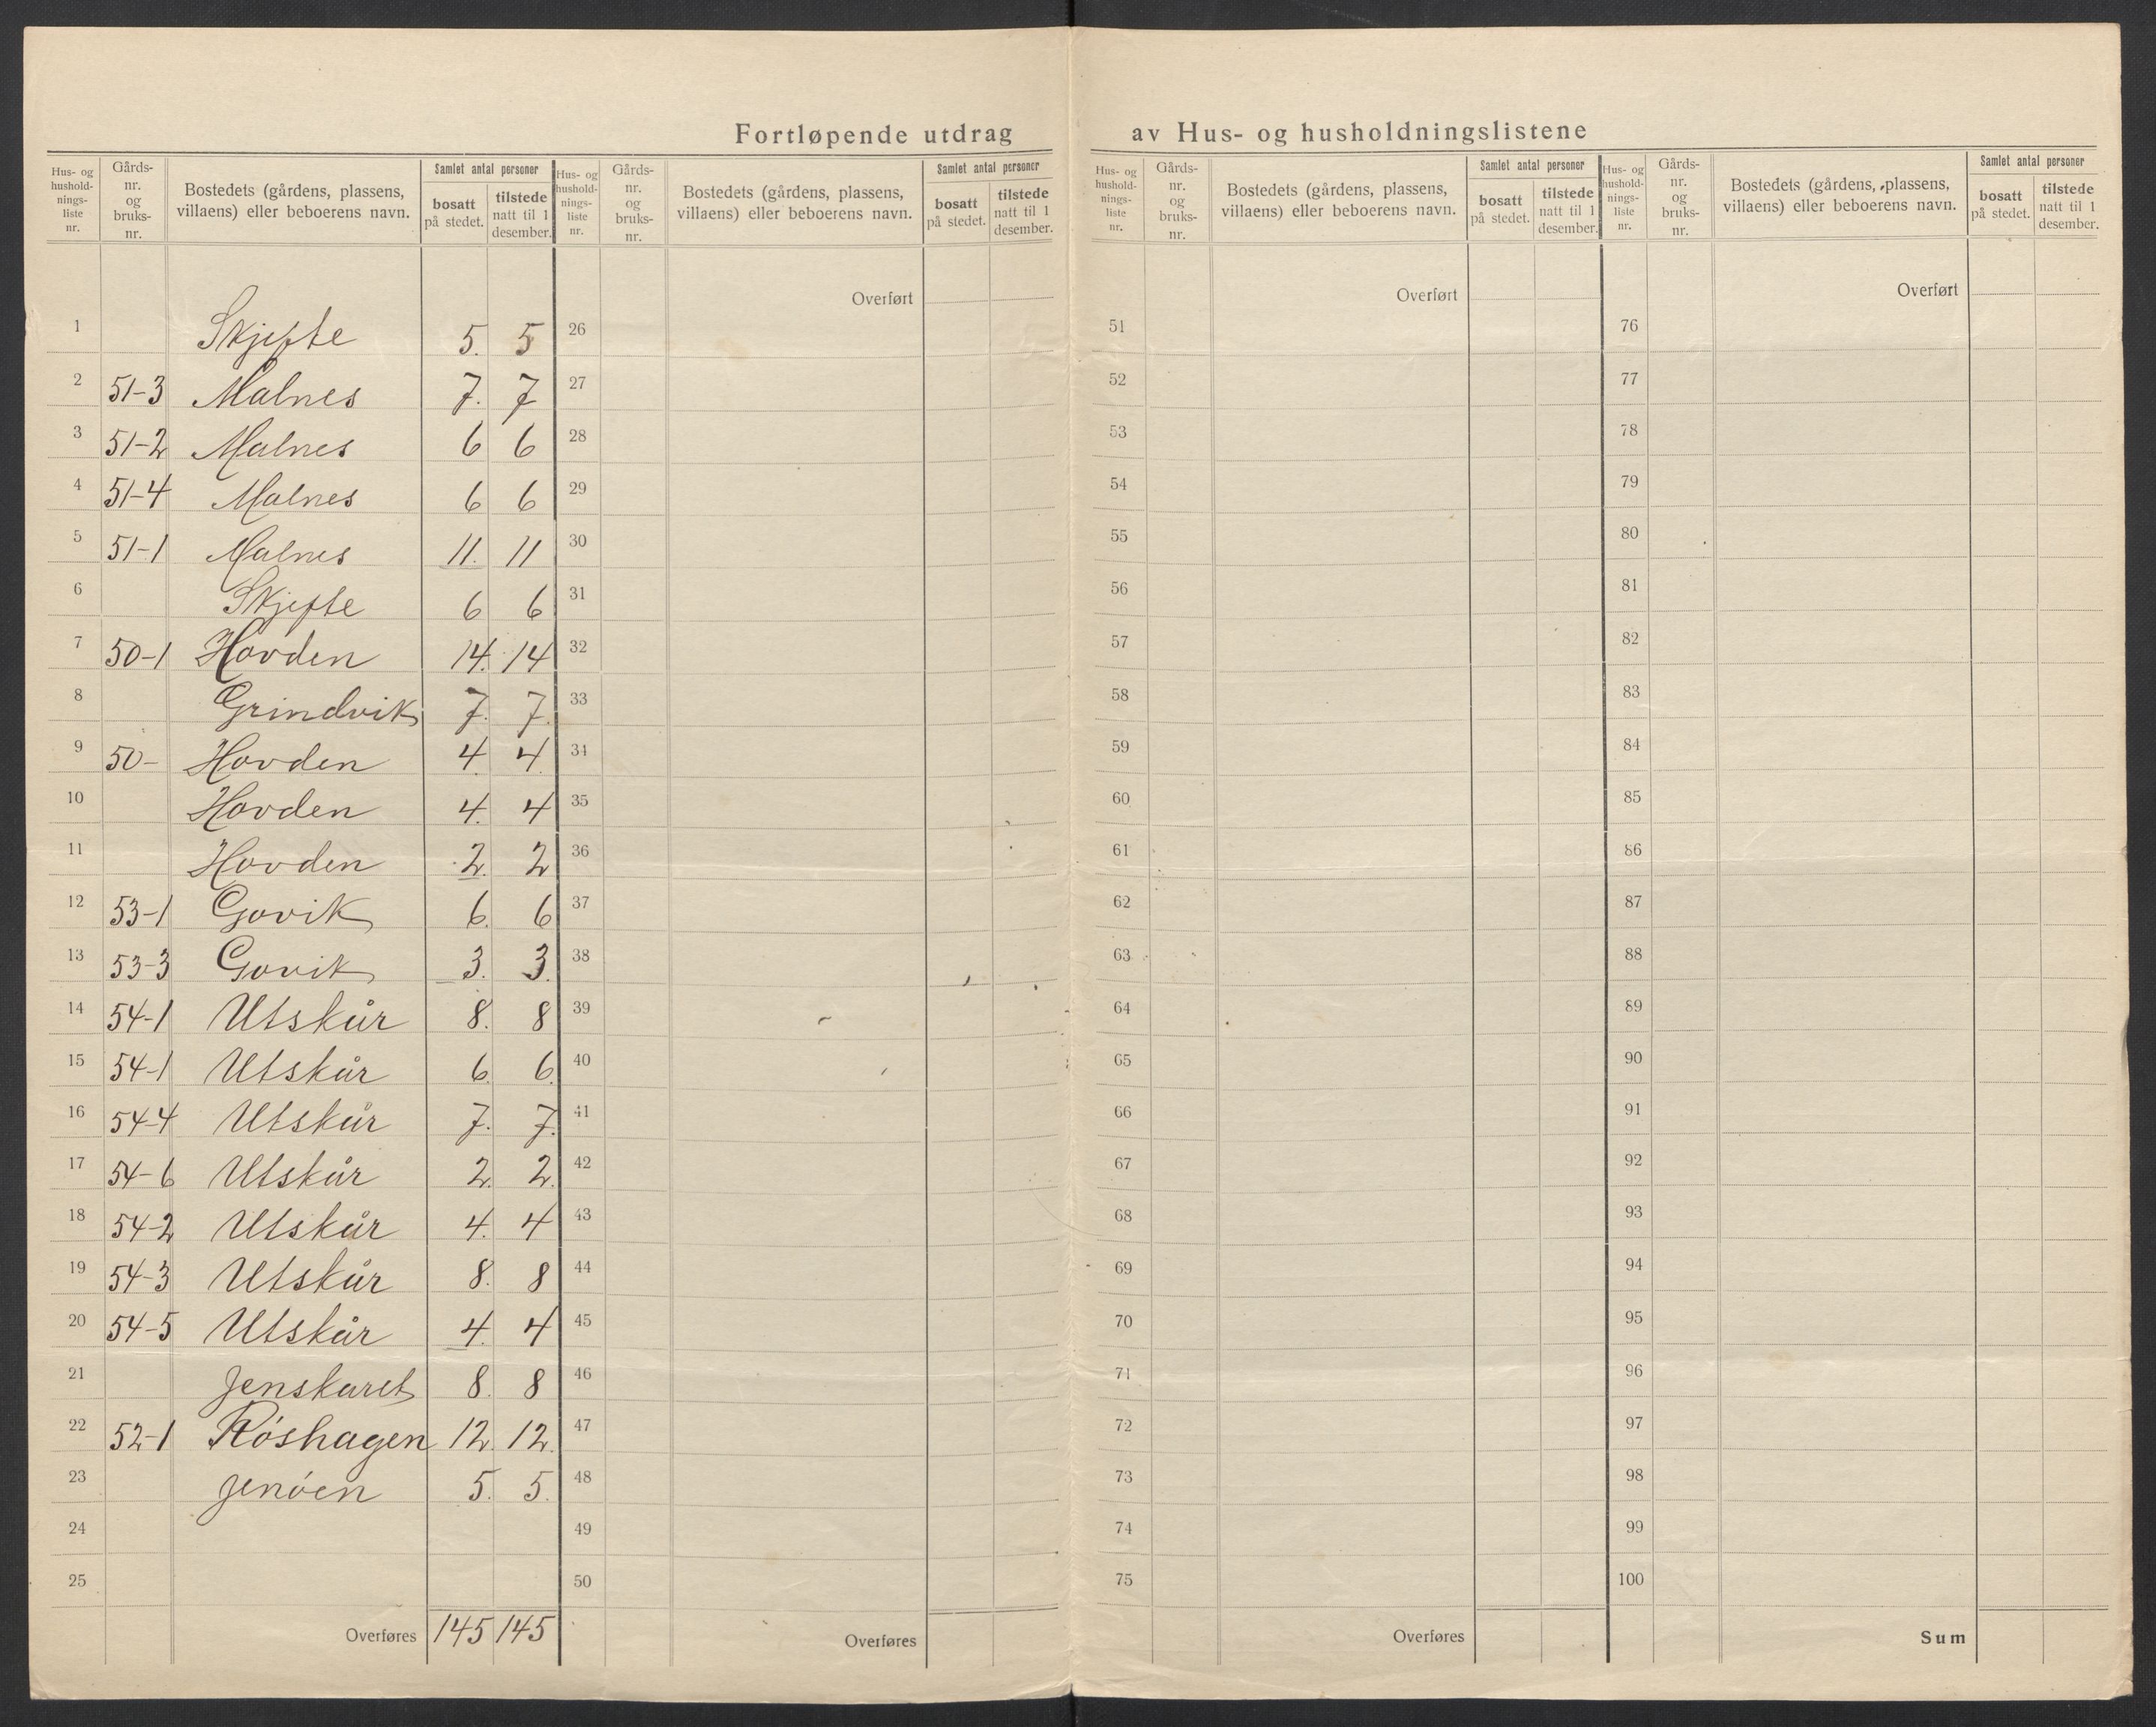 Fortløpende utdrag av Hus- og husholdningslistene
Hus- og hushold-nings-liste nr. Gårds-nr. og bruks-nr. Bostedets (gårdens, plassens, villaens) eller beboerens navn. Samlet antal personer bosatt på stedet. tilstede natt til 1 desember.
Hus- og hushold-nings-liste nr. Gårds-nr. og bruks-nr. Bostedets (gårdens, plassens, villaens) eller beboerens navn. Samlet antal personer bosatt på stedet. tilstede natt til 1 desember.
Hus- og hushold-nings-liste nr. Gårds-nr. og bruks-nr. Bostedets (gårdens, plassens, villaens) eller beboerens navn. Samlet antal personer bosatt på stedet. tilstede natt til 1 desember.
Hus- og hushold-nings-liste nr. Gårds-nr. og bruks-nr. Bostedets (gårdens, plassens, villaens) eller beboerens navn. Samlet antal personer bosatt på stedet. tilstede natt til 1 desember.
1 Skjefte 5. 5
2 51-3 Malnes 7. 7
3 51-2 Malnes 6 6
4 51-4 Malnes 6 6
5 51-1 Malnes 11. 11
6 Skjefte 6 6
7 50-1 Hovden 14. 14
8 Grindvik 7. 7.
9 50- Hovden 4. 4.
10 Hovden 4. 4
11 Hovden 2. 2
12 53-1 Govik 6. 6
13 53-3 Govik 3. 3.
14 54-1 Utskår 8. 8
15 54-1 Utskår 6. 6.
16 54-4 Utskår 7. 7.
17 54-6 Utskår 2. 2.
18 54-2 Utskår 4. 4
19 54-3 Utskår 8. 8
20 54-5 Utskår 4. 4
21 Jenskaret 8. 8
22 52-1 Røshagen 12. 12.
23 Jenøen 5. 5.
24
25
Overføres 145 145
Overført
26
27
28
29
30
31
32
33
34
35
36
37
38
39
40
41
42
43
44
45
46
47
48
49
50
Overføres
Overført
51
52
53
54
55
56
57
58
59
60
61
62
63
64
65
66
67
68
69
70
71
72
73
74
75
Overføres
Overført
76
77
78
79
80
81
82
83
84
85
86
87
88
89
90
91
92
93
94
95
96
97
98
99
100
Sum